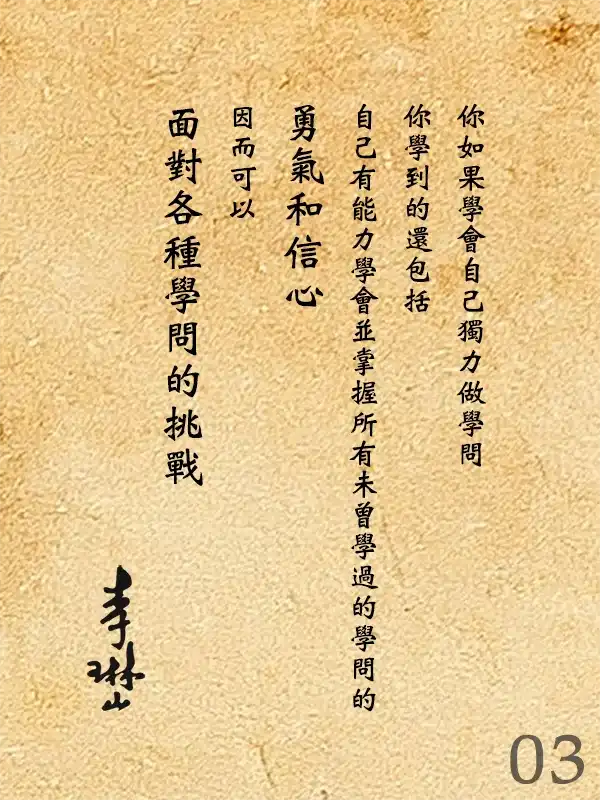 你如果學會自己獨力做學問
你學到的還包括
自己有能力學會並掌握所有未曾學過的學問的
勇氣和信心
因而可以
面對各種學問的挑戰
李琳山
03